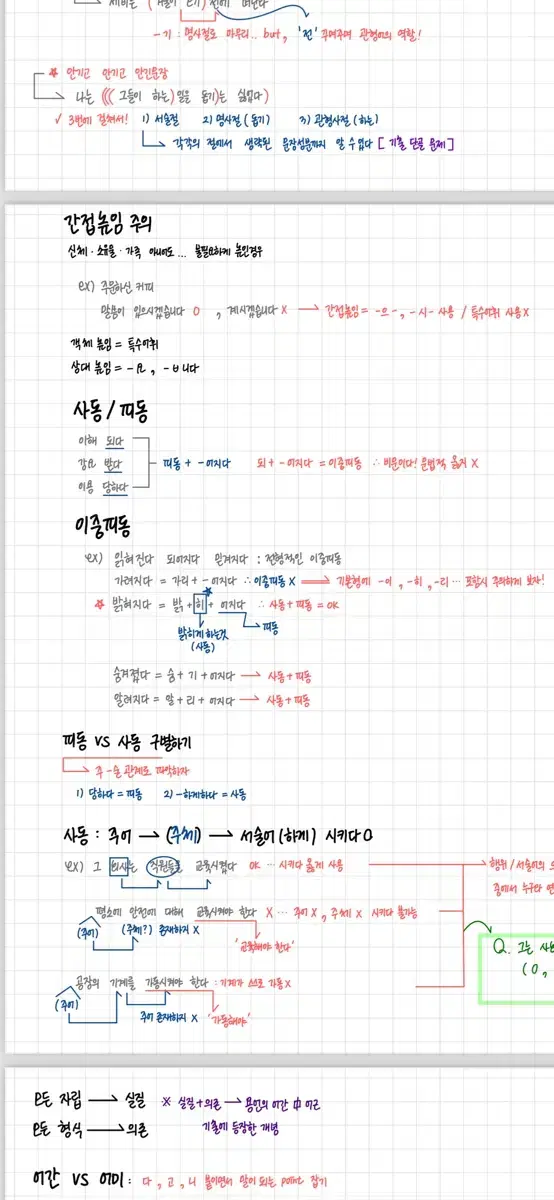 -기 : 명사절로 마무리.. but, '전' 꾸며주며 관형어의 역할!
★ 안기고 안기고 안긴문장
나는 (((그들이 하는)일을 돕기)는 싫었다)
✓ 3번에 걸쳐서! 1) 서술절 2) 명사절(돕기) 3) 관형사절(하는)
각각의 절에서 생략된 문장성분까지 알 수 있다 [기출 단골 문제]
간접높임 주의
신체·소유물·가족 아니어도... 불필요하게 높인경우
ex) 주문하신 커피
말씀이 있으시겠습니다 O , 계시겠습니다 X → 간접높임 = -으-, -시- 사용 / 특수어휘 사용 X
객체 높임 = 특수어휘
상대 높임 = -요, -ㅂ니다
사동 / 피동
이해 되다
강요 받다
이용 당하다
피동 + -어지다 되 + -어지다 = 이중피동 ∴ 비문이다! 문법적 옳지 X
이중피동
ex) 읽혀진다 되어지다 믿겨지다 : 전형적인 이중피동
가려지다 = 가리 + -어지다 ∴ 이중피동 X ⟹ 기본형에 -이, -히, -리 ... 포함시 주의하게 보자!
★ 밝혀지다 = 밝 + 히 + 어지다 ∴ 사동 + 피동 = OK
밝히게 하는것 피동
(사동)
숨겨졌다 = 숨 + 기 + 어지다 → 사동 + 피동
알려지다 = 알 + 리 + 어지다 → 사동 + 피동
피동 VS 사동 구별하기
주-술 관계로 파악하자
1) 당하다 = 피동 2) -하게하다 = 사동
사동 : 주어 → (주체) → 서술어(하게) 시키다 O
ex) 그 회사는 직원들을 교육시켰다 OK ... 시키다 옳게 사용
행위/서술어의
중에서 누구와
평소에 안전에 대해 교육시켜야 한다 X ... 주어 X, 주체 X 시키다 불가능
(주어) (주체?) 존재하지 X
'교육해야 한다'
Q. 그는
(O,
공장의 기계를 가동시켜야 한다 : 기계가 스스로 가동 X
(주어)
주어 존재하지 X '가동해야'
모든 자립 → 실질 * 실질+의존 → 용언의 어간 中 어근
모든 형식 → 의존 기출에 등장한 개념
어간 VS 어미 : 다, 고, 니 붙이면서 말이 되는 point 잡기